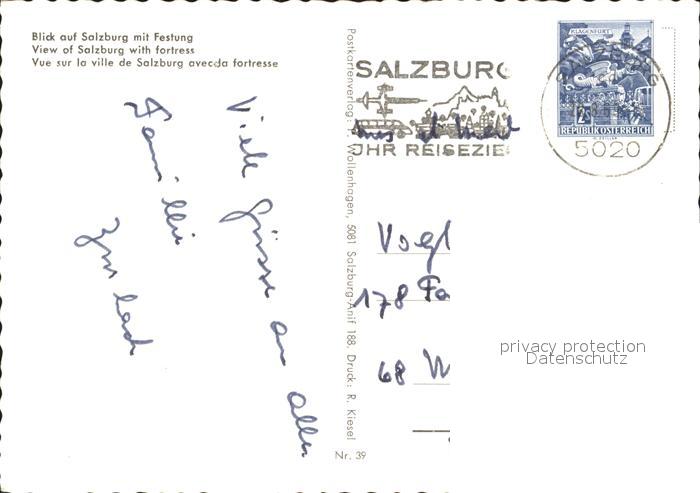 Blick auf Salzburg mit Festung
View of Salzburg with fortress
Vue sur la ville de Salzburg avec la forteresse
Viele Grüsse an alle
Familie
Postkartenverlag: F. Wollenhagen, 5081 Salzburg-Anif 188, Druck: R. Kiesel
Nr. 39
SALZBURG
IHR REISEZIE
KLAGENFURT
2S
REPUBLIK ÖSTERREICH
5020
Vogl
178 Fa
68 W
privacy protection
Datenschutz